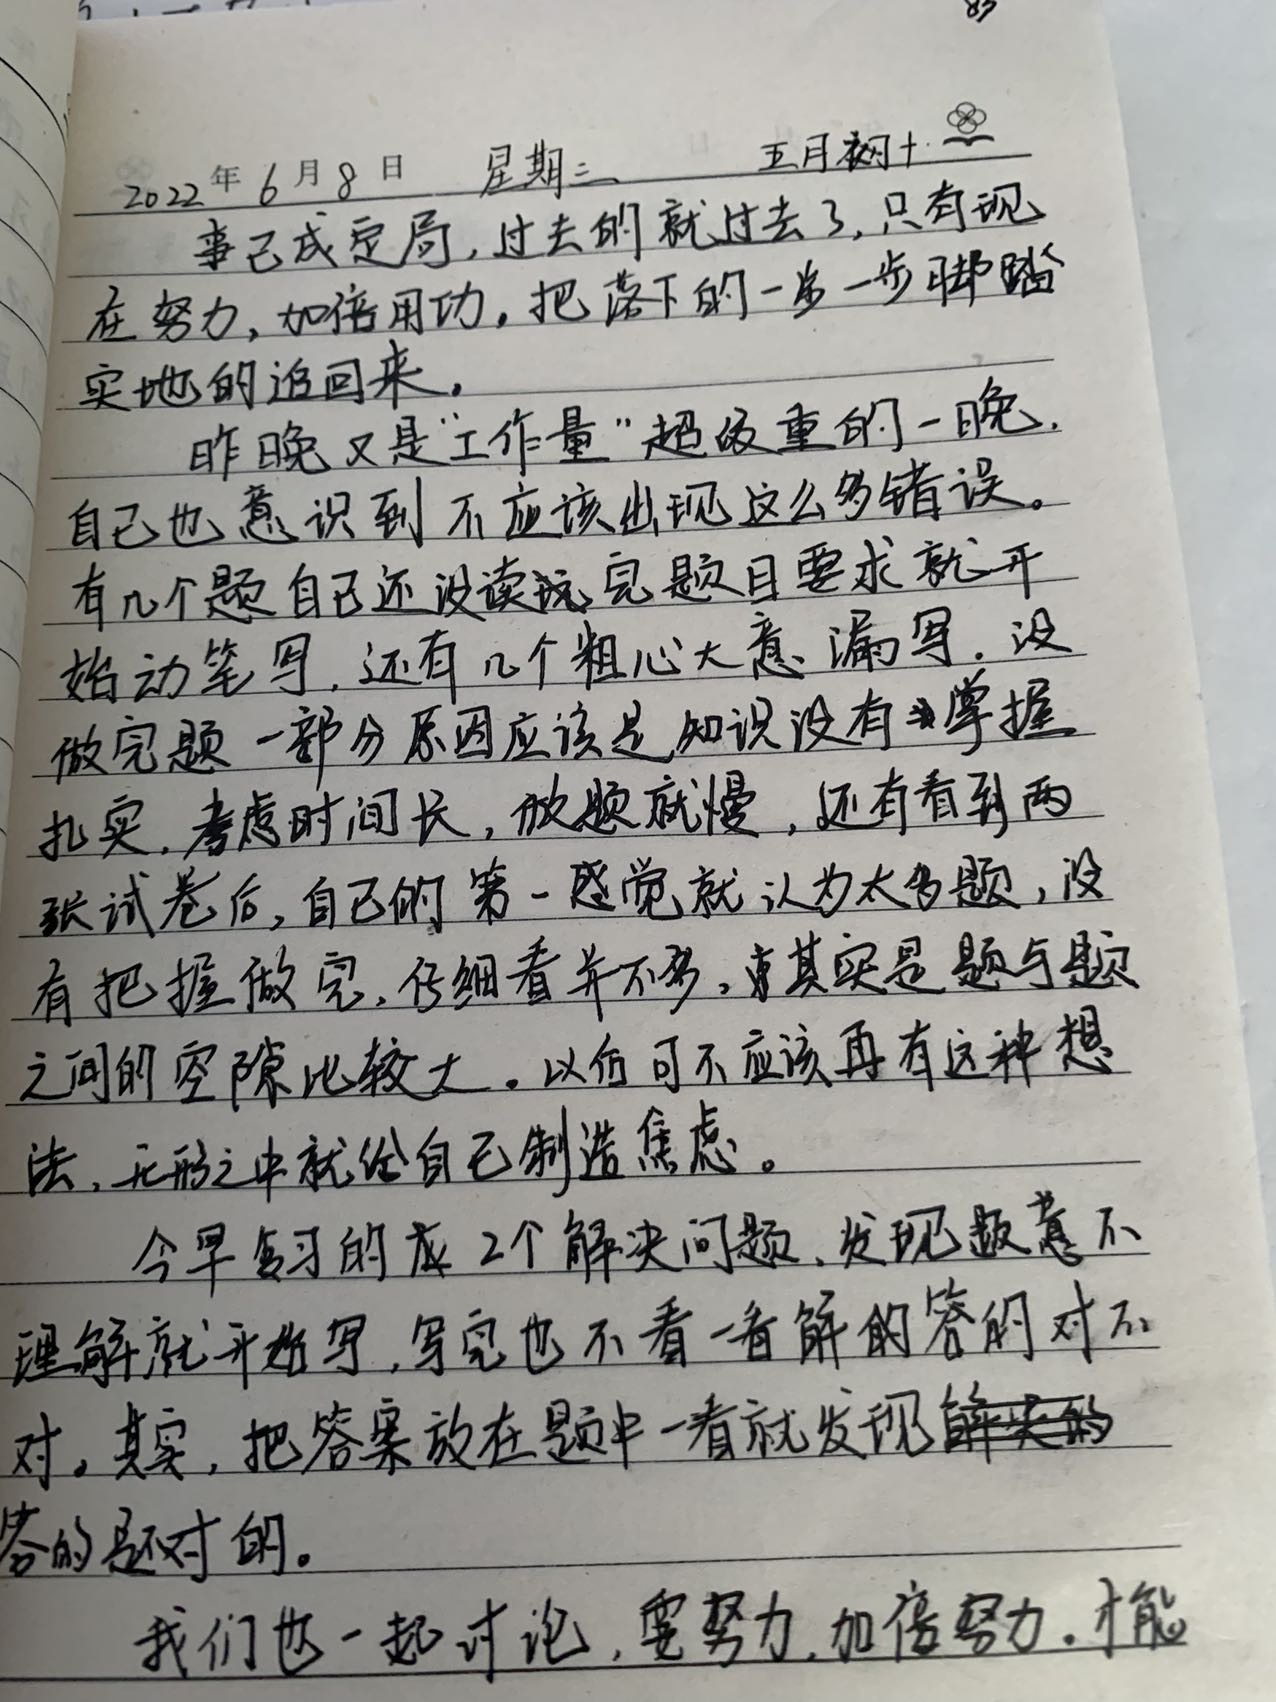 2022年6月8日 星期三 五月初十
事已成定局,过去的就过去了,只有现
在努力,加倍用功。把落下的一步一步脚踏
实地的追回来。
昨晚又是"工作量"超级重的一晚.
自己也意识到不应该出现这么多错误。
有几个题自己还没读完题目要求就开
始动笔写,还有几个粗心大意漏写.没
做完题一部分原因应该是知识没有掌握
扎实.考虑时间长,做题就慢,还有看到两
张试卷后,自己的第一感觉就认为太多题,没
有把握做完,仔细看并不多,其实是题与题
之间的空隙比较大。以后可不应该再有这种想
法,无形之中就给自己制造焦虑。
今早复习的 2个解决问题,发现题意不
理解就开始写,写完也不看一看解的答的对不
对。其实,把答案放在题中一看就发现
答的是不对的。
我们也一起讨论,要努力,加倍努力.才能